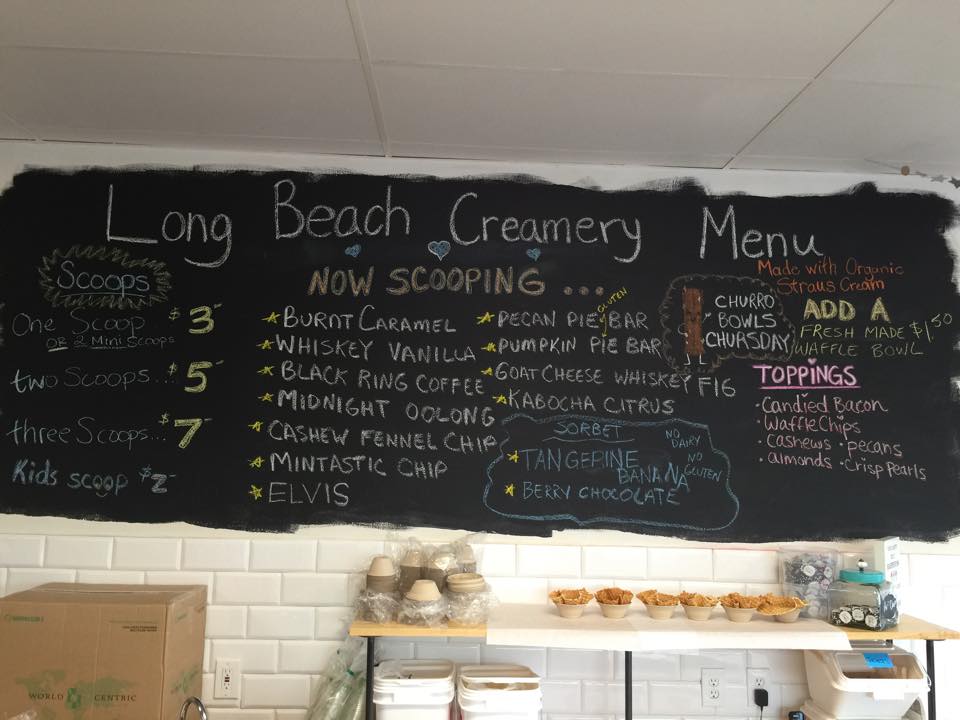 Long Beach Creamery Menu
Scoops
One Scoop $3
OR 2 Mini Scoops
two Scoops... $5
three Scoops... $7
Kids scoop $2
NOW SCOOPING ...
BURNT CARAMEL
WHISKEY VANILLA
BLACK RING COFFEE
MIDNIGHT OOLONG
CASHEW FENNEL CHIP
MINTASTIC CHIP
ELVIS
PECAN PIE BAR
GLUTEN
PUMPKIN PIE BAR
GOAT CHEESE WHISKEY FIG
KABOCHA CITRUS
SORBET
NO DAIRY
NO GLUTEN
TANGERINE
BANANA
BERRY CHOCOLATE
CHURRO
BOWLS
CHURSDAY
Made with Organic
Straus Cream
ADD A
FRESH MADE $1.50
WAFFLE BOWL
TOPPINGS
· Candied Bacon
· Waffle Chips
· cashews · pecans
· almonds · Crisp Pearls
WORLD CENTRIC